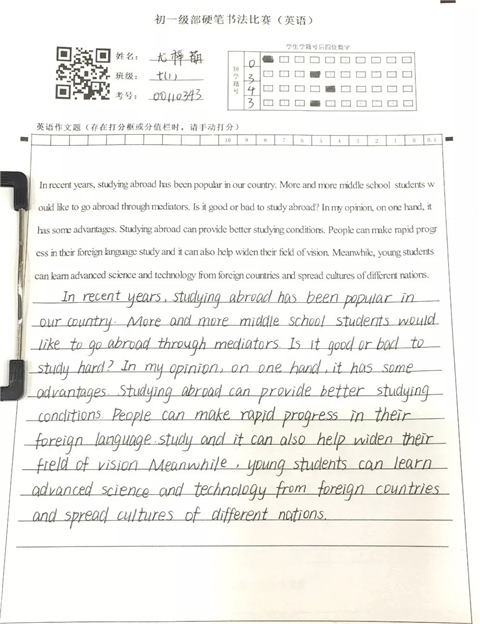 初一级部硬笔书法比赛（英语）
姓名：尤梓萌
班级：七(1)
考号：00110343
学生学籍号后四位数字
0
3
4
3
英语作文题（存在打分框或分值栏时，请手动打分）
10 9 8 7 6 5 4 3 2 1 0 0.5
In recent years, studying abroad has been popular in our country. More and more middle school students w
ould like to go abroad through mediators. Is it good or bad to study abroad? In my opinion, on one hand, it
has some advantages. Studying abroad can provide better studying conditions. People can make rapid progr
ess in their foreign language study and it can also help widen their field of vision. Meanwhile, young students
can learn advanced science and technology from foreign countries and spread cultures of different nations.
In recent years, studying abroad has been popular in
our country. More and more middle school students would
like to go abroad through mediators. Is it good or bad to
study hard? In my opinion, on one hand, it has some
advantages. Studying abroad can provide better studying
conditions. People can make rapid progress in their
foreign language study and it can also help widen their
field of vision Meanwhile, young students can learn
advanced science and technology from foreign countries
and spread cultures of different nations.